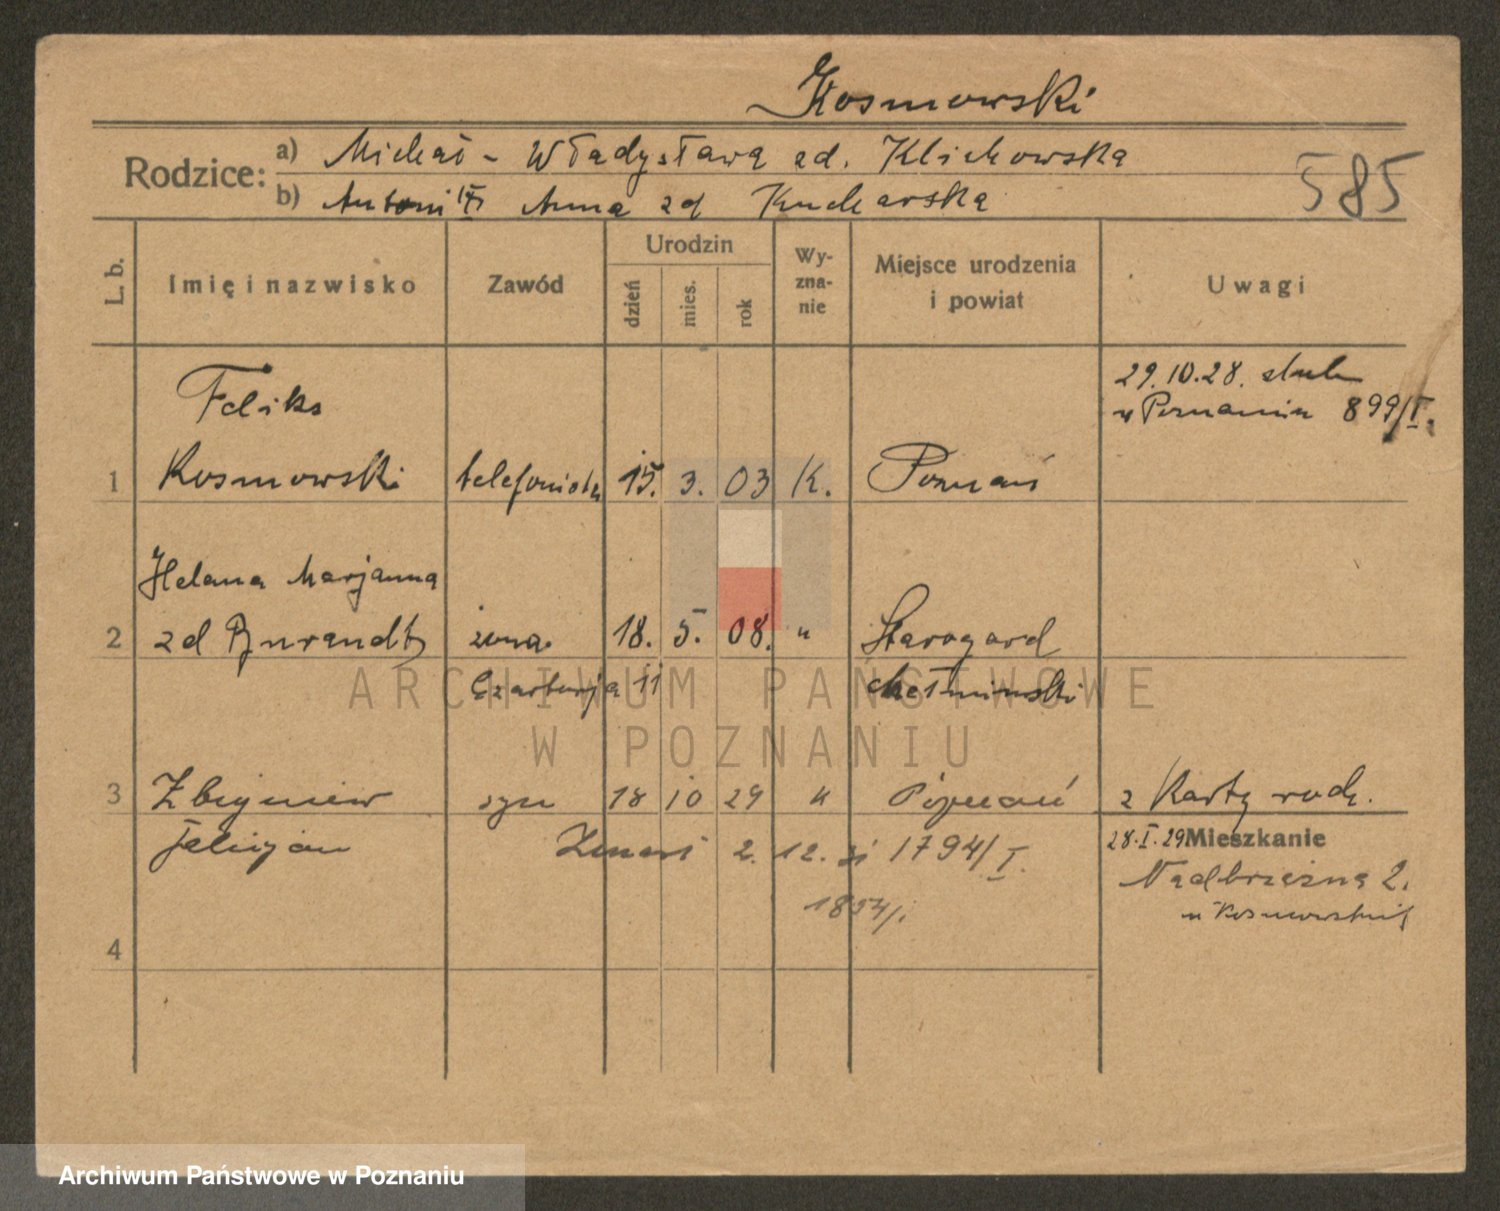 Kosmowski
Rodzice: a) Michał - Władysława zd. Klichowska
b) Antoni Anna zd Kucharska
585
L. b.
Imię i nazwisko
Zawód
Urodzin
dzień
mies.
rok
Wy-
zna-
nie
Miejsce urodzenia
i powiat
Uwagi
29.10.28. slub
w Poznaniu 899/I.
Feliks
1 Kosmowski telefonista 15. 3. 03 K. Poznań
Helena Marjanna
2 zd żona 18. 5. 08. " Starogard
11 chełminski
3 Zbigniew syn 18 10 29 " Poznań z Karty rodz.
Felicjan Zmarł 2. 12. 31 1794/I.
28.I.29 Mieszkanie
Nadbrzeżna 2.
1854/I.
4
ARCHIWUM PAŃSTWOWE
W POZNANIU
Archiwum Państwowe w Poznaniu